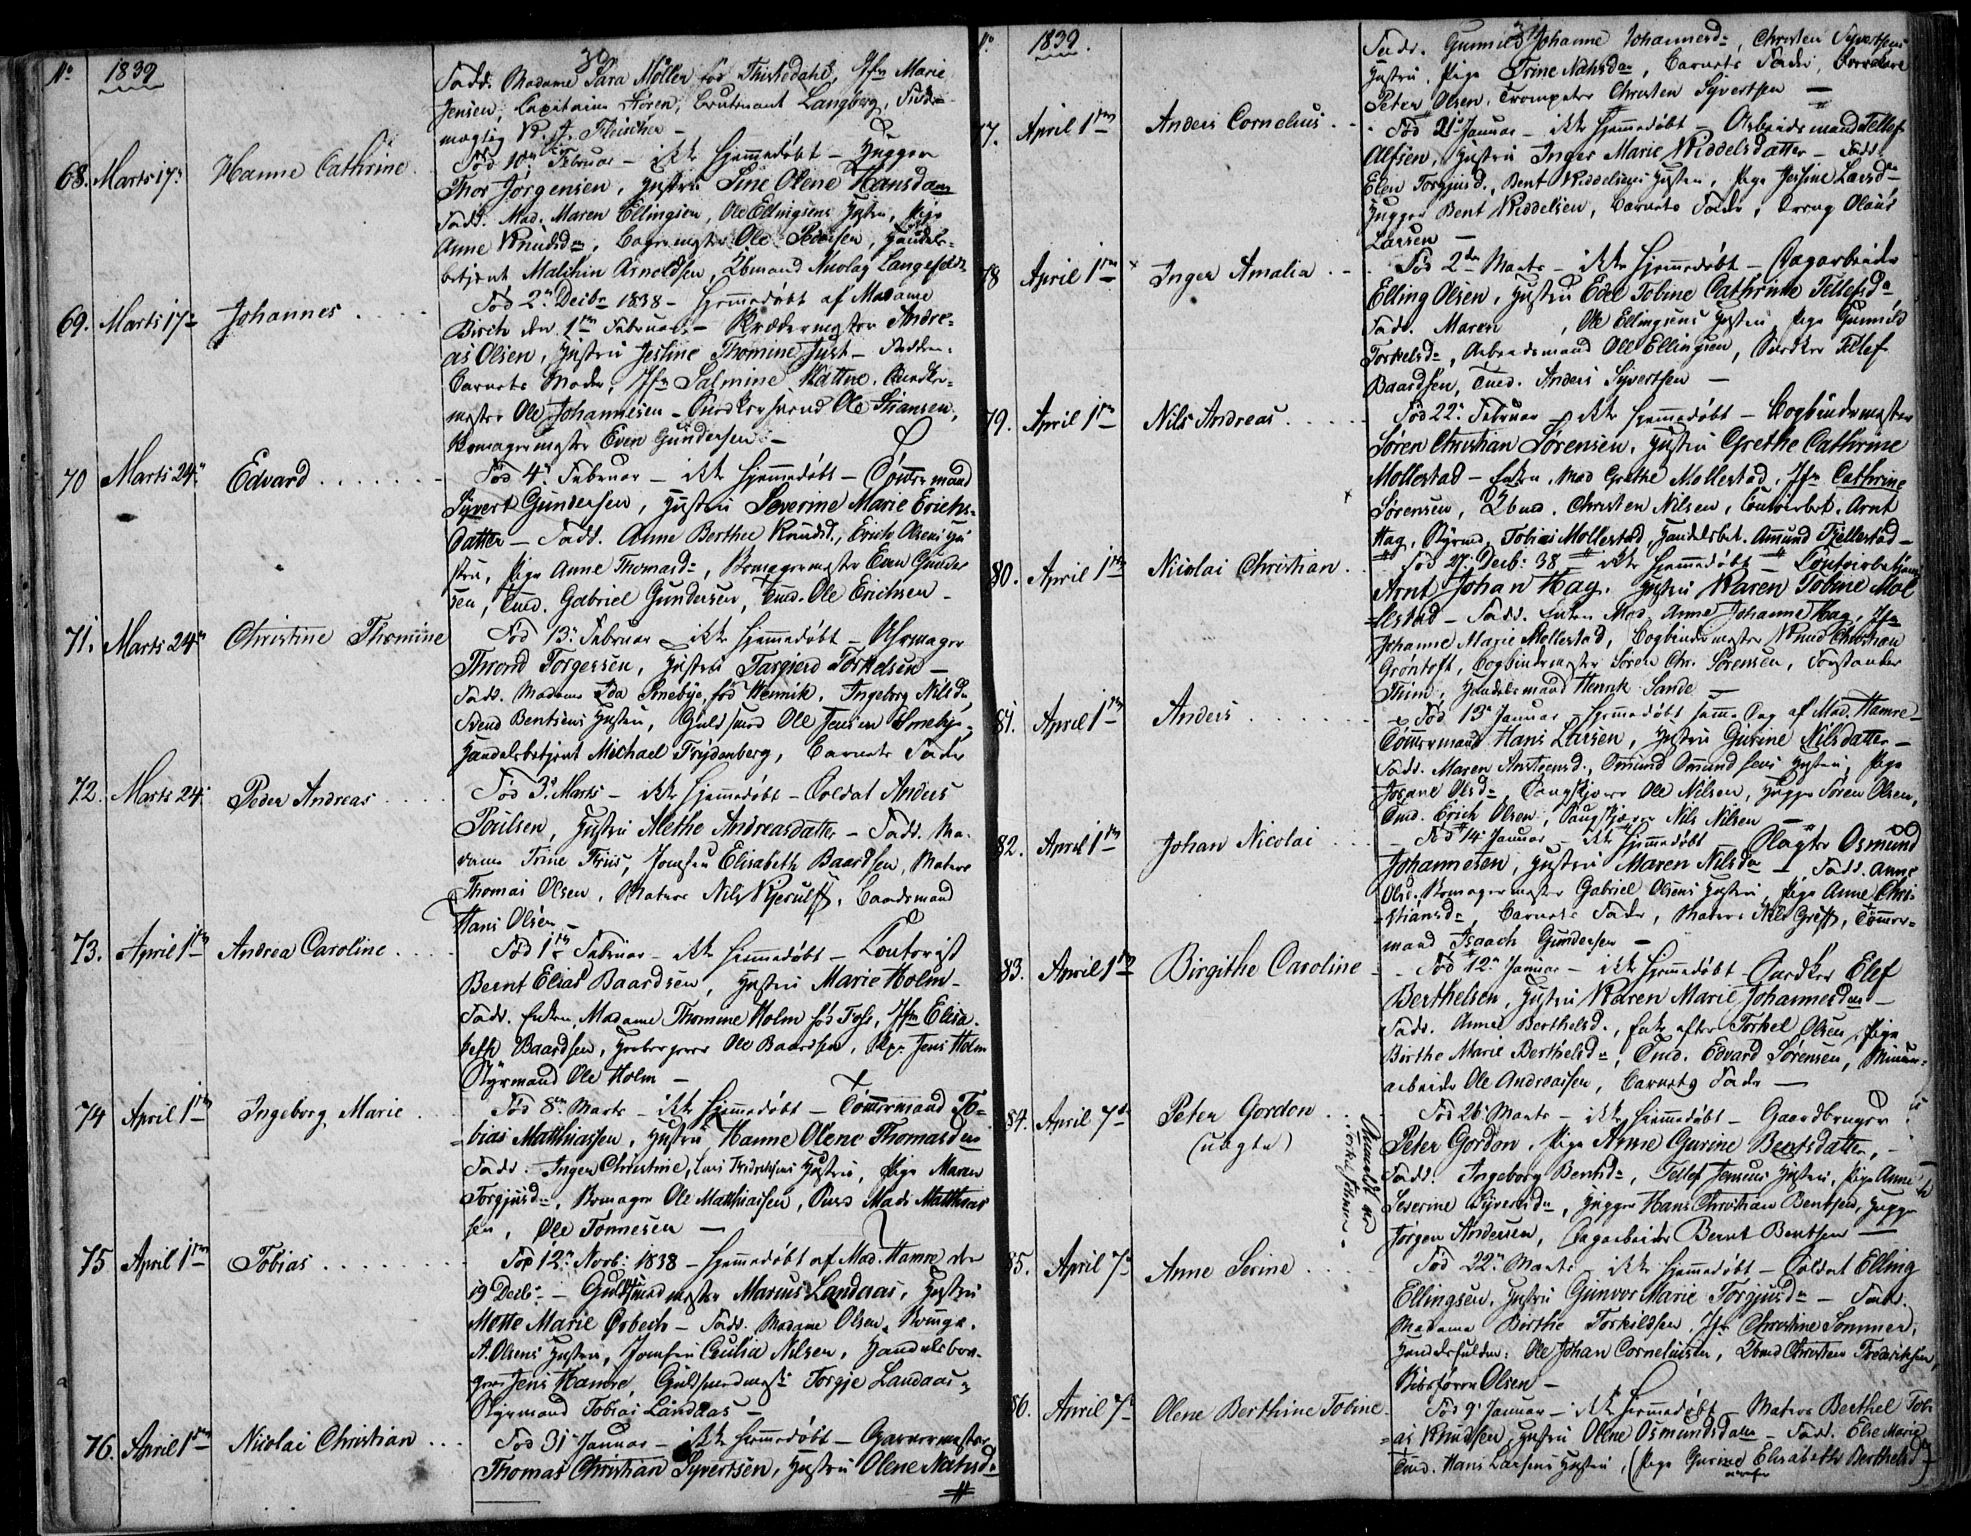 No 1839
30
Fadd. Madame Sara Møller fød Thistedahl, Jfr Marie
Jensen, Capitaine Høren, Leutenant Langberg, Fuld-
mægtig Fleischer –
68. Marts 17. Hanne Cathrine. Fød 10de Februar – ikke hjemmedøbt – Hugger
Thor Jørgensen, Hustru Sine Olene Hansdatr
Fadd. Mad. Maren Ellingsen, Ole Ellingsens Hustru, Pige
Anne Knudsdr, Bagermester Ole Pedersen, Handels-
betjent Malchin Arnoldsen, Nicolay Langefeldt
69. Marts 17 Johannes . . . . Fød 2n Decbr 1838 – hjemmedøbt af Madame
Birch den 1ste Februar – Skræddermester Andre-
as Olsen, Hustru Jestine Thomine Just – Fadd.
Barnets Moder, Jfr Salmine
mester Ole Johannesen – Snedkersvend Ole Hansen,
Skomagermester Even Gundersen –
70 Marts 24n Edvard . . . . . . . Fød 4n Februar – ikke hjemmedøbt – Tømmermand
Syvert Gundersen, Hustru Severine Marie Erichs-
datter – Fadd. Anne Berthee Knudsd., Erich Olsens Hu-
stru, Pige Anne Thomasdr, Skomagermester Even Gunder
sen, Tmd. Gabriel Gundersen, Tmd. Ole Erichsen –
71. Marts 24n Christine Thomine Fød 13n Februar – ikke hjemmedøbt – Uhrmager
Thrond Torgersen, Hustru Targjerd Torkelsen –
Fadd. Madame Ida Smebye, fød Henrik, Ingeborg Nilsdr,
Svend Bentsens Hustru, Guldsmed Ole Jensen Smebye,
Handelsbetjent Michael Frydenberg, Barnets Fader
72. Marts 24. Peder Andreas . . . . Fød 3. Marts – ikke hjemmedøbt – Soldat Anders
Poulsen, Hustru Alethe Andreasdatter – Fadd. Ma-
dame Trine Friis, Jomfru Elisabeth Baardsen, Matros
Thomas Olsen, Matros Nils Kjerulff, Baadsmand
Hans Olsen –
73. April 1ste Andrea Caroline . . . . Fød 1ste Februar – ikke hjemmedøbt – Contorist
Bernt Elias Baardsen, Hustru Marie Holm –
Fadd. Enken Madame Thomine Holm fød Foss, Jfr Elisa-
beth Baardsen, Ole Baardsen, Skpr. Jens Holm
Styrmand Ole Holm –
74 April 1ste Ingeborg Marie . Fød 8n Marts – ikke hjemmedøbt – Tømmermand To-
bias Matthiassen, Hustru Hanne Olene Thomasdr
Fadd. Inger Christine, Lars Fredriksens Hustru, Pige Maren
Torgjusdr, Skomager Ole Matthiassen, Mads Matthias
sen, Ole Tønnesen –
75 April 1ste Tobias . . . . . . . . Fød 12n Novbr 1838 – hjemmedøbt af Mad. Hamre den
19 Decbr – Guldsmedmester Marius Landaas, Hustru
Mette Marie Qvbech – Fadd. Madame Olsen,
A. Olsens Hustru, Jomfru Cecilia Nilsen, Handelsbor-
ger Jens Hamre, Guldsmedmestr Torgje Landaas,
Styrmand Tobias Landaas –
76. April 1ste Nicolai Christian . . . Fød 31 Januar – ikke hjemmedøbt – Garvermester
Thomas Christian Syvertsen, Hustru Olene Natvsdr
No. 1839.
31
Fadd. Gunnild Johanne Johannesdr, Christen Syvertsens
Hustru, Pige Trine Natvsdr, Barnets Fader,
Peter Olsen, Trompeter Christen Syvertsen –
77. April 1ste Anders Cornelius . . Fød 21. Januar – ikke hjemmedøbt – Arbeidsmand Tellef
Alfsen, Hustru Inger Marie Middelsdatter – Fadd.
Elen Torgjusd., Bent Middelsens Hustru, Pige Jesine Larsdr
Hugger Bent Middelsen, Barnets Fader, Dreng Olaus
Larsen –
78 April 1ste × Inger Amalia . – Fød 2den Marts – ikke hjemmedøbt – Dagarbeider
Elling Olsen, Hustru Edel Tobine Cathrine Tellefsdr
Fadd. Maren , Ole Ellingsens Hustru, Pige Gunnild
Torkelsdr, Arbeidsmand Ole Ellingsen, Snedker Tellef
Baardsen, Tmd. Anders Syvertsen –
79. April 1ste Nils Andreas . . . . . Fød 22. Februar – ikke hjemmedøbt – Bogbindermester
Søren Christian Sørensen, Hustru Grethe Cathrine
Mollestad – Enken Mad Grethe Mollestad, Jfr Cathrine
× Sørensen, Christen Nilsen, Contoirbet. Arnt
Hag, Styrmd. Tobias Mollestad, Handelsbet. Amund Fjellestad –
80. April 1ste Nicolai Christian . . Fød 27. Decb: 38 – ikke hjemmedøbt – Contoirbetjent
Arnt Johan Hag, Hustru Karen Tobine Mol
lestad – Fadd. Enken Mad. Anne Johanne Hag, Jfr
Johanne Marie Mollestad, Bogbindermester Knud Christian
Grøntoft, Bogbindermester Søren Chr. Sørensen, Forstander
Thim, Handelsmand Henrik Sande –
81. April 1ste Anders . . . . . . . . Fød 13n Januar – hjemmedøbt samme Dag af Mad. Hamre –
Tømmermand Hans Larsen, Hustru Gurine Nilsdatter –
Fadd. Maren Anstensd., Osmund Osmundsens Hustru, Pige
Josine Olsdr, Ole Nilsen, Hugger Søren Olsen,
Tmd. Erich Olsen, Nils Nilsen –
82. April 1ste Johan Nicolai . . . Fød 14 Januar – ikke hjemmedøbt – Slagter Osmund
Johannesen, Hustru Maren Nilsdr – Fadd. Anne
Olsd. Skomagermester Gabriel Olsens Hustru, Pige Anne Chri-
stiansdr, Barnets Fader, Matros Nils Greff, Tømmer-
mand Isaach Gundersen –
83. April 1ste Birgithe Caroline – Fød 12n Januar – ikke hjemmedøbt – Snedker Elef
Berthelsen, Hustru Karen Marie Johannesdr –
Fadd. Anne Berthelsd., Enke efter Torkel Olsen, Pige
Birthe Marie Berthelsdr, Tmd. Edvard Sørensen, Minør-
arbeider Ole Andreassen, Barnets Fader –
84. April 7de Peter Gordon . . .
(uægte) Fød 26n Marts – ikke hjemmedøbt – Gaardbruger
Peter Gordon, Pige Anne Gurine Bentsdatter, –
Fadd. Ingeborg Bentsdr, Tellef Jensens Hustru, Pige Anne
Severine Syvertsdr, Hugger Hans Christian Bentsen, Hugger
Jørgen Andersen, Dagarbeider Bernt Bentsen –
Anmeldt af
85. April 7de Anne Serine . . . . Fød 22n Marts – ikke hjemmedøbt – Soldat Elling
Ellingsen, Hustru Gunvor Marie Torgjusdr – Fadd.
Madame Birthe Torkildsen, Jfr Christine Sommer,
Ole Johan Corneliussen, Christen Frederiksen,
Olsen –
86. April 7de Olene Berthine Tobine. Fød 9. Januar – ikke hjemmedøbt – Matros Berthel Tobi-
as Knudsen, Hustru Olene Osmundsdatr – Fadd. Else Marie
Tmd. Hans Larsens Hustru, Pige Gurine Elisabeth Berthelsdr